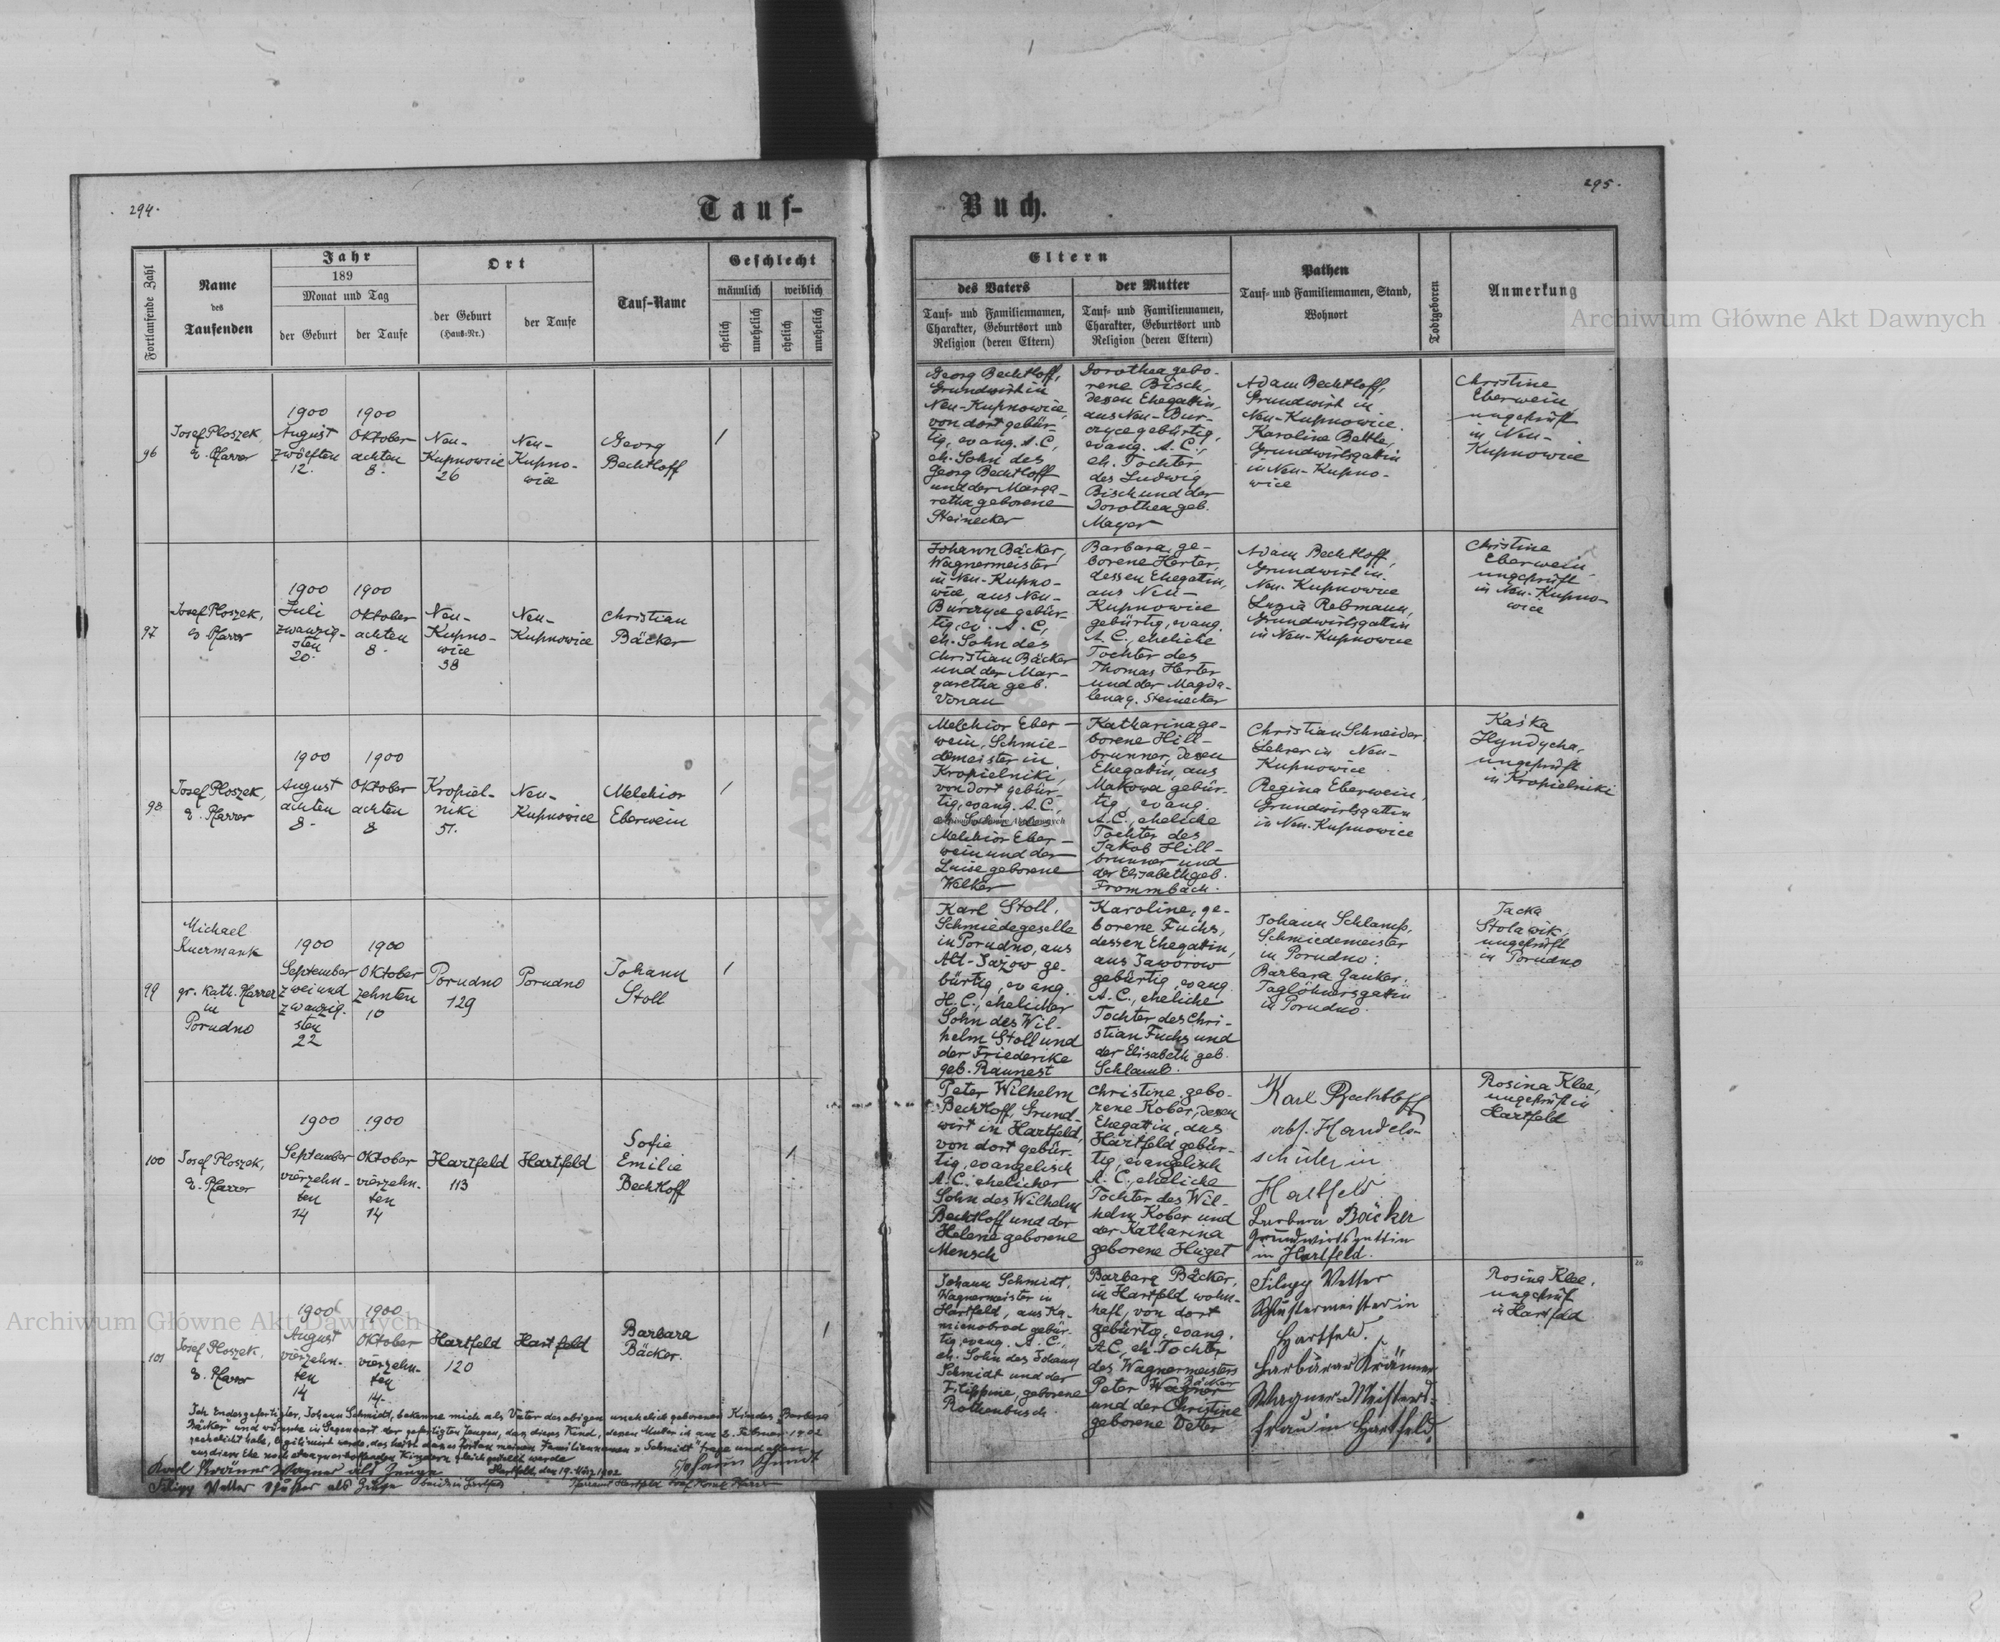 294.
Tauf-
Fortlaufende Zahl
Name
des
Taufenden
Jahr
189
Monat und Tag
der Geburt
der Taufe
Ort
der Geburt
(Haus-Nr.)
der Taufe
Tauf-Name
Geschlecht
männlich
weiblich
ehelich
unehelich
ehelich
unehelich
96
Josef Ploszek,
e. Pfarrer
1900
August
zwölften
12.
1900
Oktober
achten
8.
Neu-
Kupnowice
26
Neu-
Kupno-
wice
Georg
Bechtloff
1
97
Josef Ploszek,
e. Pfarrer
1900
Juli
zwanzig-
sten
20.
1900
Oktober
achten
8.
Neu-
Kupno-
wice
38
Neu-
Kupnowice
Christian
Bäcker
98
Josef Ploszek,
e. Pfarrer
1900
August
achten
8.
1900
Oktober
achten
8
Kropiel-
niki
51.
Neu-
Kupnowice
Melchior
Eberwein
1
99
Michael
Kuermank
gr. kath. Pfarrer
in
Porudno
1900
September
zweiund
zwanzig-
sten
22
1900
Oktober
zehnten
10
Porudno
129
Porudno
Johann
Stoll
1
100
Josef Ploszek,
e. Pfarrer
1900
September
vierzehn-
ten
14
1900
Oktober
vierzehn-
ten
14
Hartfeld
113
Hartfeld
Sofie
Emilie
Bechtloff
1
101
Josef Ploszek,
e. Pfarrer
1900
August
vierzehn-
ten
14
1900
Oktober
vierzehn-
ten
14.
Hartfeld
120
Hartfeld
Barbara
Bäcker.
1
Ich Endesgefertigter, Johann Schmidt, bekenne mich als Vater des obigen unehelich geborenen Kindes "Barbara
Bäcker" und wünsche in Gegenwart der gefertigten Zeugen, dass dieses Kind, deren Mutter ich am 2. Februar 1902
geehelicht habe, legitimiert werde, das heisst dass es fortan meinen Familiennamen "Schmidt" trage und allen
aus dieser Ehe noch etwa zu erhoffenden Kindern gleich gestellt werde
Hartfeld, den 19. März 1902
Johann Schmidt
Karl Krämer Wagner als Zeuge
Filipp Vetter Schuster als Zeuge
beide in Hartfeld
Pfarramt Hartfeld
295.
Buch.
Eltern
des Vaters
Tauf- und Familiennamen,
Charakter, Geburtsort und
Religion (deren Eltern)
der Mutter
Tauf- und Familiennamen,
Charakter, Geburtsort und
Religion (deren Eltern)
Pathen
Tauf- und Familiennamen, Stand,
Wohnort
Todtgeboren
Anmerkung
Georg Bechtloff,
Grundwirt in
Neu-Kupnowice,
von dort gebür-
tig, evang. A. C.,
eh. Sohn des
Georg Bechtloff
und der Marga-
retha geborene
Steinecker
Dorothea gebo-
rene Bisch,
dessen Ehegattin,
aus Neu-Bur-
czyce gebürtig,
evang. A. C.,
eh. Tochter
des Ludwig
Bisch und der
Dorothea geb.
Mayer
Adam Bechtloff,
Grundwirt in
Neu-Kupnowice.
Karoline Bettle,
Grundwirtsgattin
in Neu-Kupno-
wice
Christine
Eberwein
ungeprüft
in Neu-
Kupnowice
Johann Bäcker,
Wagnermeister
in Neu-Kupno-
wice, aus Neu-
Burczyce gebür-
tig, ev. A. C.,
eh. Sohn des
Christian Bäcker
und der Mar-
garetha geb.
Vonau
Barbara ge-
borene Herter,
dessen Ehegattin,
aus Neu-
Kupnowice
gebürtig, evang.
A. C., eheliche
Tochter des
Thomas Herter
und der Magda-
lena g. Steinecker
Adam Bechtloff,
Grundwirt in
Neu-Kupnowice
Luzia Rebmann,
Grundwirtsgattin
in Neu-Kupnowice
Christine
Eberwein,
ungeprüft
in Neu-Kupno-
wice
Melchior Eber-
wein, Schmie-
demeister in
Kropielniki,
von dort gebür-
tig, evang. A. C.,
eh. Sohn des
Melchior Eber-
wein und der
Luise geborene
Welker
Katharina ge-
borene Hill-
brunner, dessen
Ehegattin, aus
Makowa gebür-
tig, evang.
A. C., eheliche
Tochter des
Jakob Hill-
brunner und
der Elisabeth geb.
Frommbach.
Christian Schneider,
Lehrer in Neu-
Kupnowice
Regina Eberwein,
Grundwirtsgattin
in Neu-Kupnowice
Kaśka
Hyndycha,
ungeprüft
in Kropielniki
Karl Stoll,
Schmiedegeselle
in Porudno, aus
Alt-Jażow ge-
bürtig, evang.
H. C., ehelicher
Sohn des Wil-
helm Stoll und
der Friederike
geb. Raunest
Karoline, ge-
borene Fuchs,
dessen Ehegattin,
aus Jaworow
gebürtig, evang.
A. C., eheliche
Tochter des Chri-
stian Fuchs und
der Elisabeth geb.
Schlamb.
Johann Schlamp,
Schmiedemeister
in Porudno.
Barbara Gauker,
Taglöhnersgattin
in Porudno.
Jacka
Stolawik,
ungeprüft
in Porudno
Peter Wilhelm
Bechtloff, Grund-
wirt in Hartfeld,
von dort gebür-
tig, evangelisch
A. C. ehelicher
Sohn des Wilhelm
Bechtloff und der
Helene geborene
Mensch
Christine, gebo-
rene Kober, dessen
Ehegattin, aus
Hartfeld gebür-
tig, evangelisch
A. C., eheliche
Tochter des Wil-
helm Kober und
der Katharina
geborene Huget
Karl Bechtloff
abs. Handels-
schüler in
Hartfeld
Barbara Bäcker
Grundwirtsgattin
in Hartfeld.
Rosina Klee,
ungeprüft in
Hartfeld
Johann Schmidt,
Wagnermeister in
Hartfeld, aus Ka-
mienobrod gebür-
tig, evang. A. C.,
eh. Sohn des Johann
Schmidt und der
Filippine, geborene
Rothenbusch
Barbara Bäcker,
in Hartfeld wohn-
haft, von dort
gebürtig, evang.
A. C., eh. Tochter
des Wagnermeisters
Bäcker
Peter Wagner
und der Christine
geborene Vetter
Filipp Vetter
Schustermeister in
Hartfeld.
Barbara Krämer
Wagner-Meisters-
frau in Hartfeld.
Rosina Klee,
ungeprüf
in Hartfeld
20
Archiwum Główne Akt Dawnych
Archiwum Główne Akt Dawnych